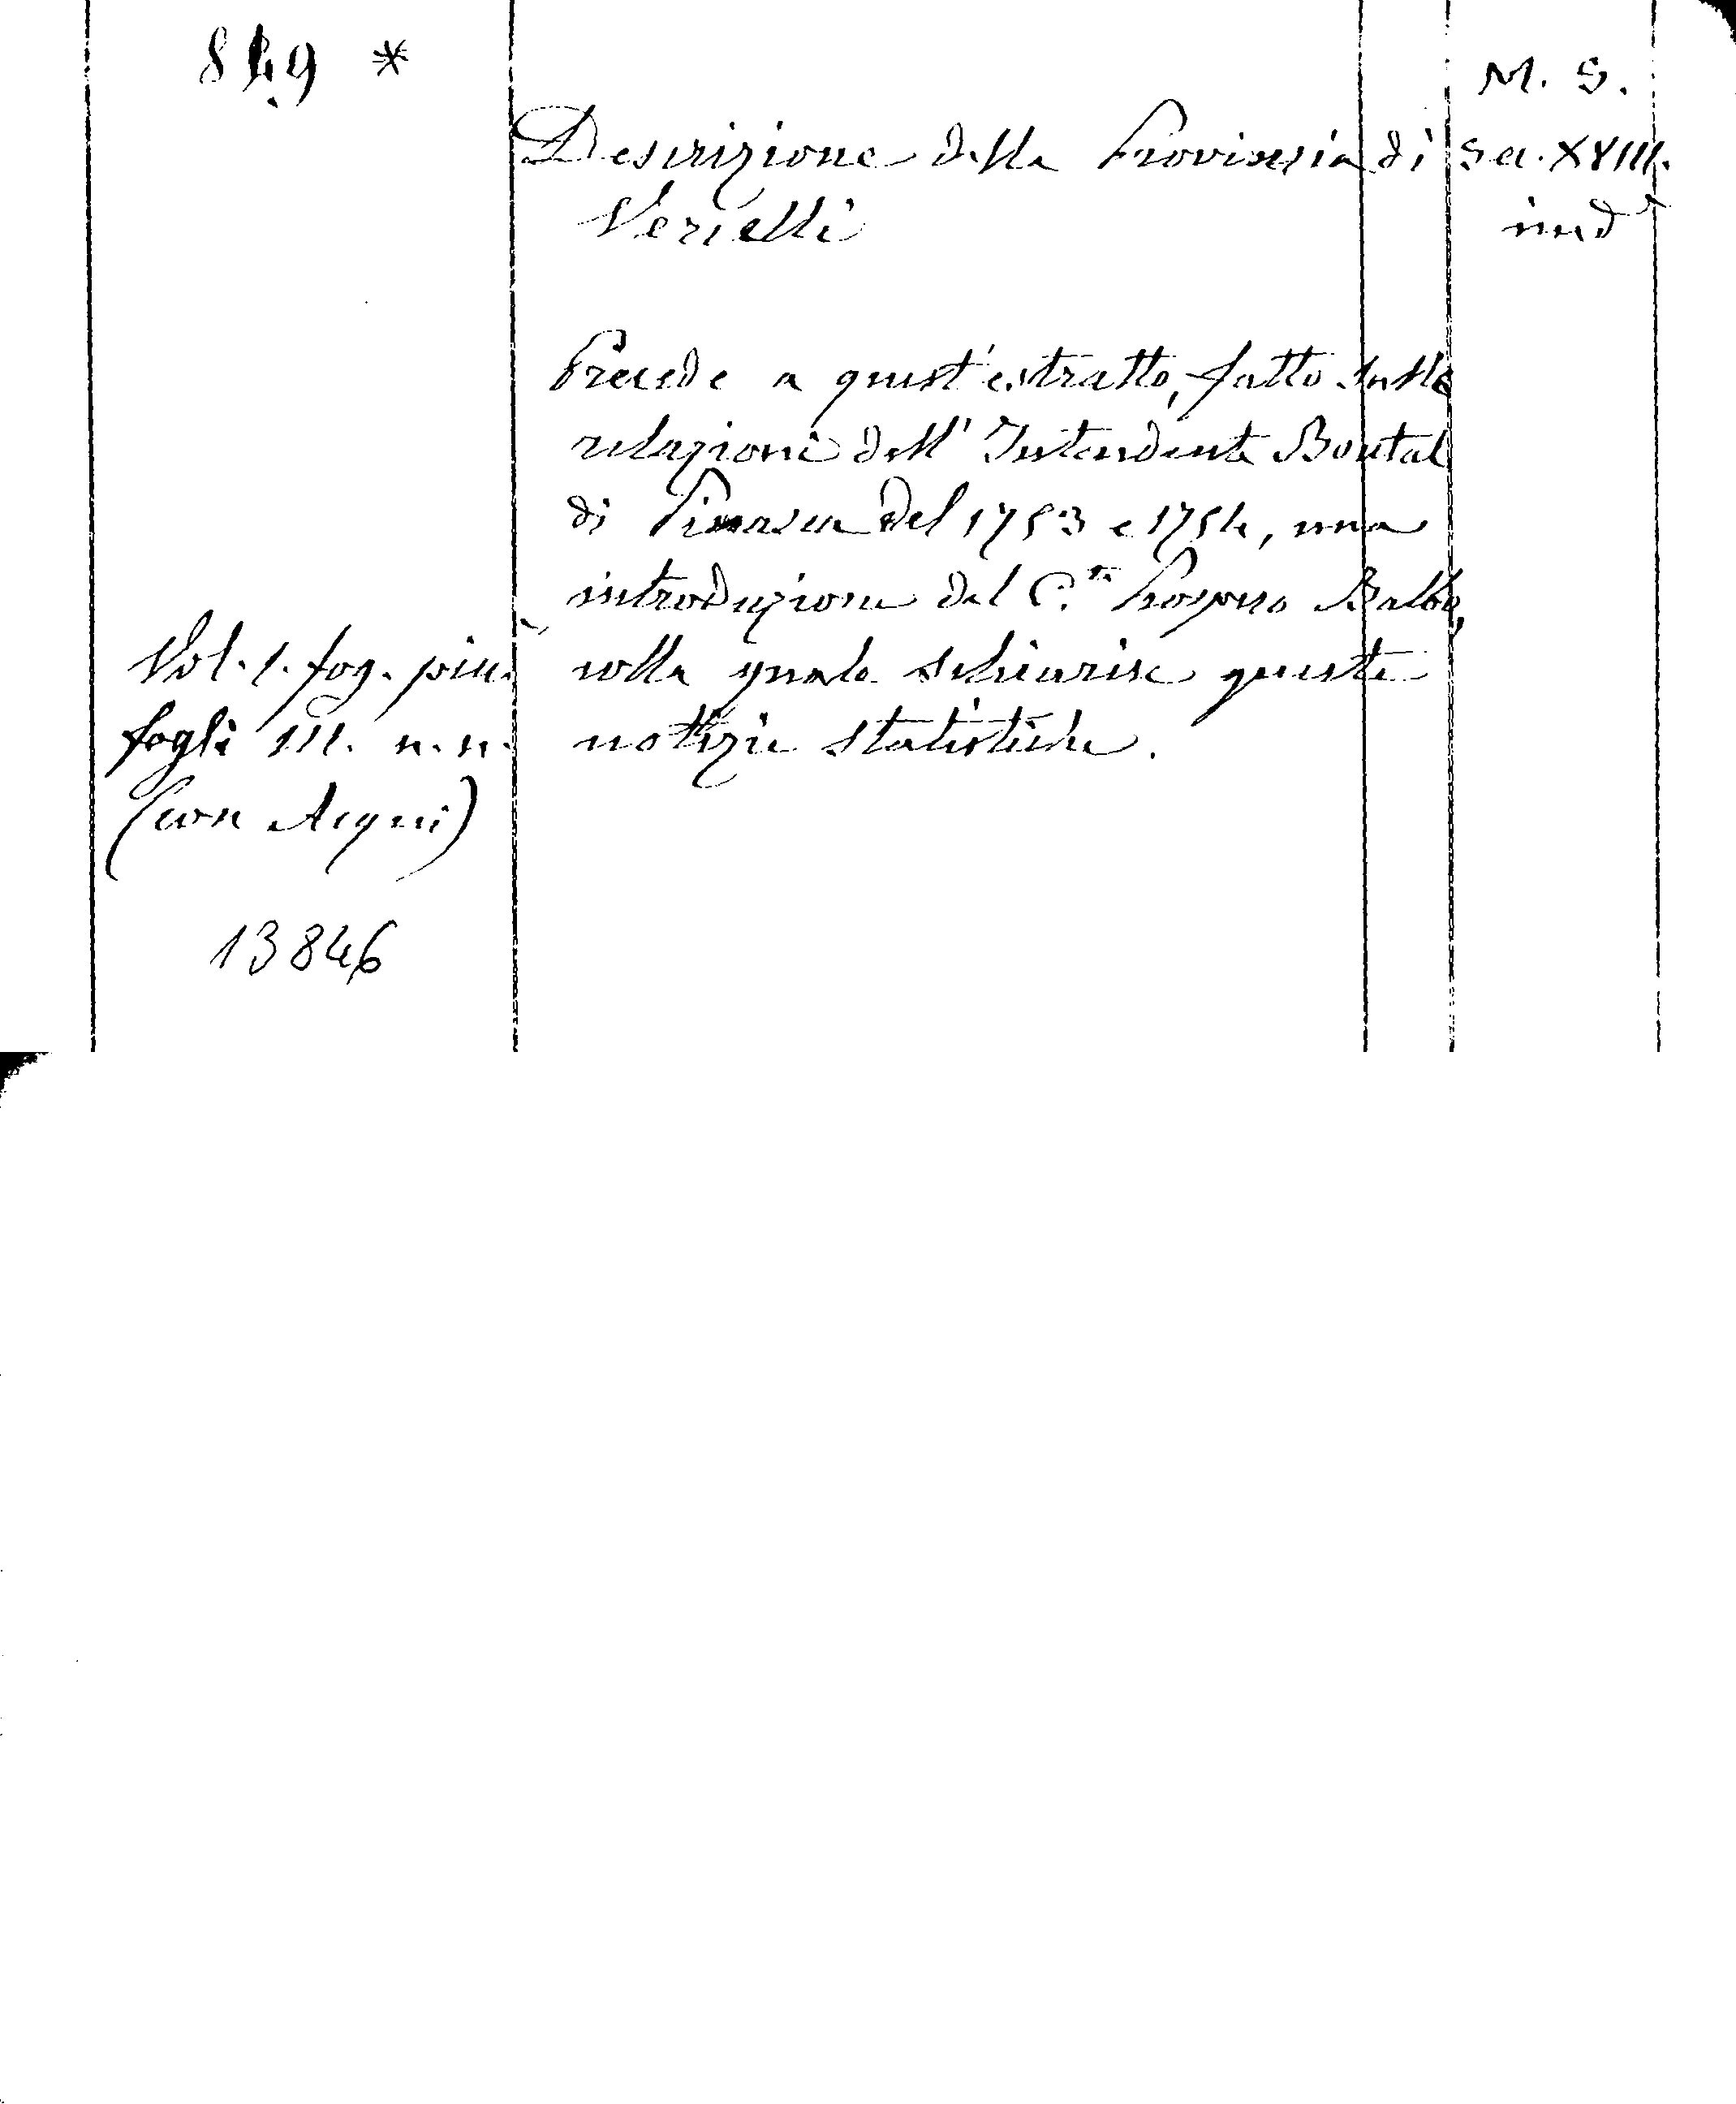 849 *
M. S.
Descrizione della Provincia di
Sec. XVIII.
Vercelli
ined°
Precede a quest'estratto, fatto sulle
relazioni dell'Intendente Boutal
di Pinasca del 1753 e 1754, una
introduzione del C.te Prospero Balbo,
colla quale schiarisce queste
notizie statistiche.
Vol. 1. fog. picc.
fogli 111. n. n.
(con Acqui)
13846